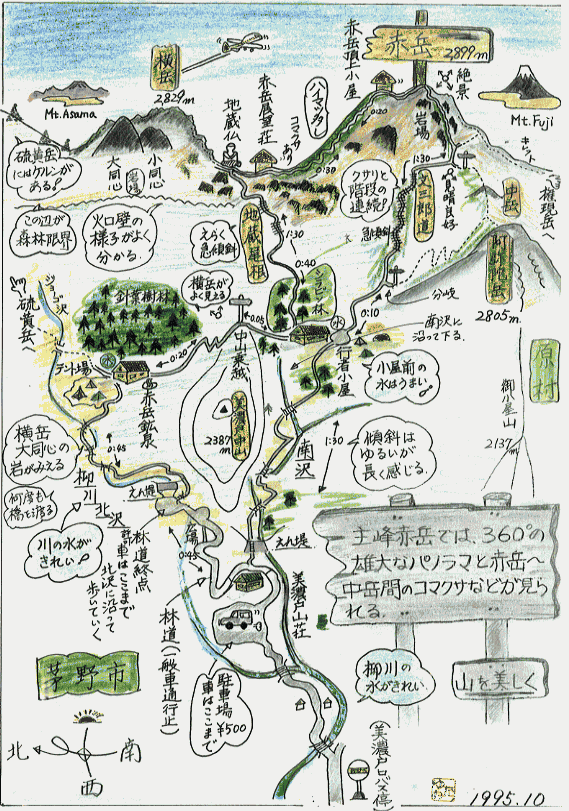 赤岳
2,899m
赤岳頂上小屋
横岳
2,829m
Mt.Asama
Mt.Fuji
絶景
岩場
0:20
1:30
ハイマツ
赤岳展望荘
コマクサあり
地蔵仏
0:30
小同心
大同心
硫黄岳
にはケルンが
ある!
この辺が
森林限界
火口壁の
様子がよく
分かる。
えらく
急傾斜
地蔵尾根
1:30
0:40
クサリと
階段の
連続!
文三郎道
見晴良好
急傾斜
中岳
キレット
権現岳へ
阿弥陀岳
2805m
分岐
0:10
南沢に
沿って下る。
シラビソ林
横岳が
よく見える
0:05
中山乗越
針葉樹林
ジョーゴ沢
硫黄岳へ
テント場
水
0:20
赤岳鉱泉
水
行者小屋
小屋前の
水はうまい!
美濃戸中山
2387m
原村
御小屋山
2137m
横岳
大同心の
岩がみえる
0:45
柳川
何度も
橋を渡る
北沢
川の水が
きれい!
えん堤
南沢
1:30
傾斜は
ゆるいが
長く感じる。
えん堤
広場
0:45
林道終点
許可車はここまで
北沢に沿って
歩いていく
林道(一般車通行止)
美濃戸山荘
駐車場
車はここまで
¥500
主峰赤岳では、360°の
雄大なパノラマと赤岳〜
中岳間のコマクサなどが見ら
れる。
柳川の
水がきれい。
山を美しく
茅野市
北
南
西
(美濃戸口バス停)
1995.10